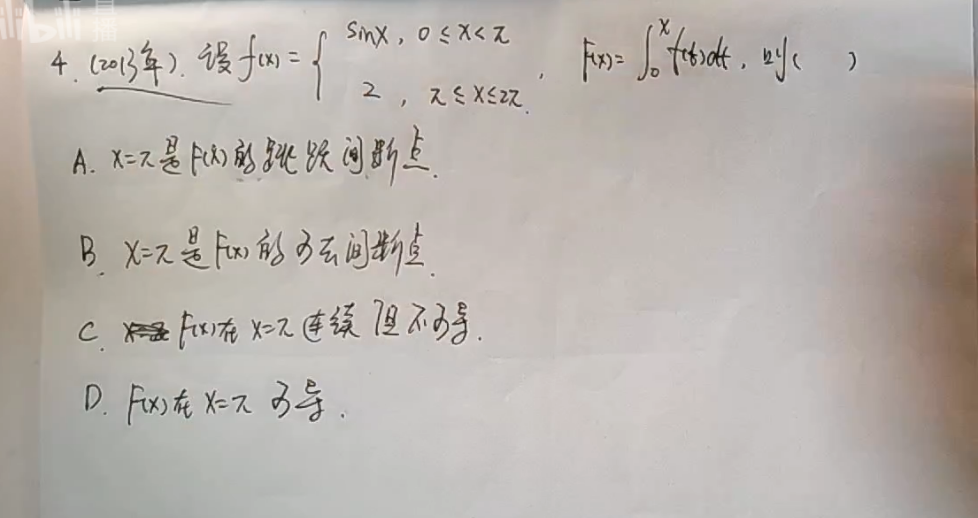 直播
4. (2013年). 设 f(x) = { sinx, 0 ≤ x < π
2, π ≤ x ≤ 2π. , F(x) = ∫₀ˣ f(t)dt, 则( )
A. x=π 是 F(x) 的跳跃间断点.
B. x=π 是 F(x) 的可去间断点.
C. F(x) 在 x=π 连续但不可导.
D. F(x) 在 x=π 可导.